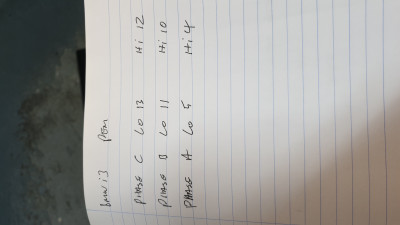 PEM
PHASE C LO 13 Hi 12
PHASE B LO 11 Hi 10
PHASE A LO 5 Hi 4